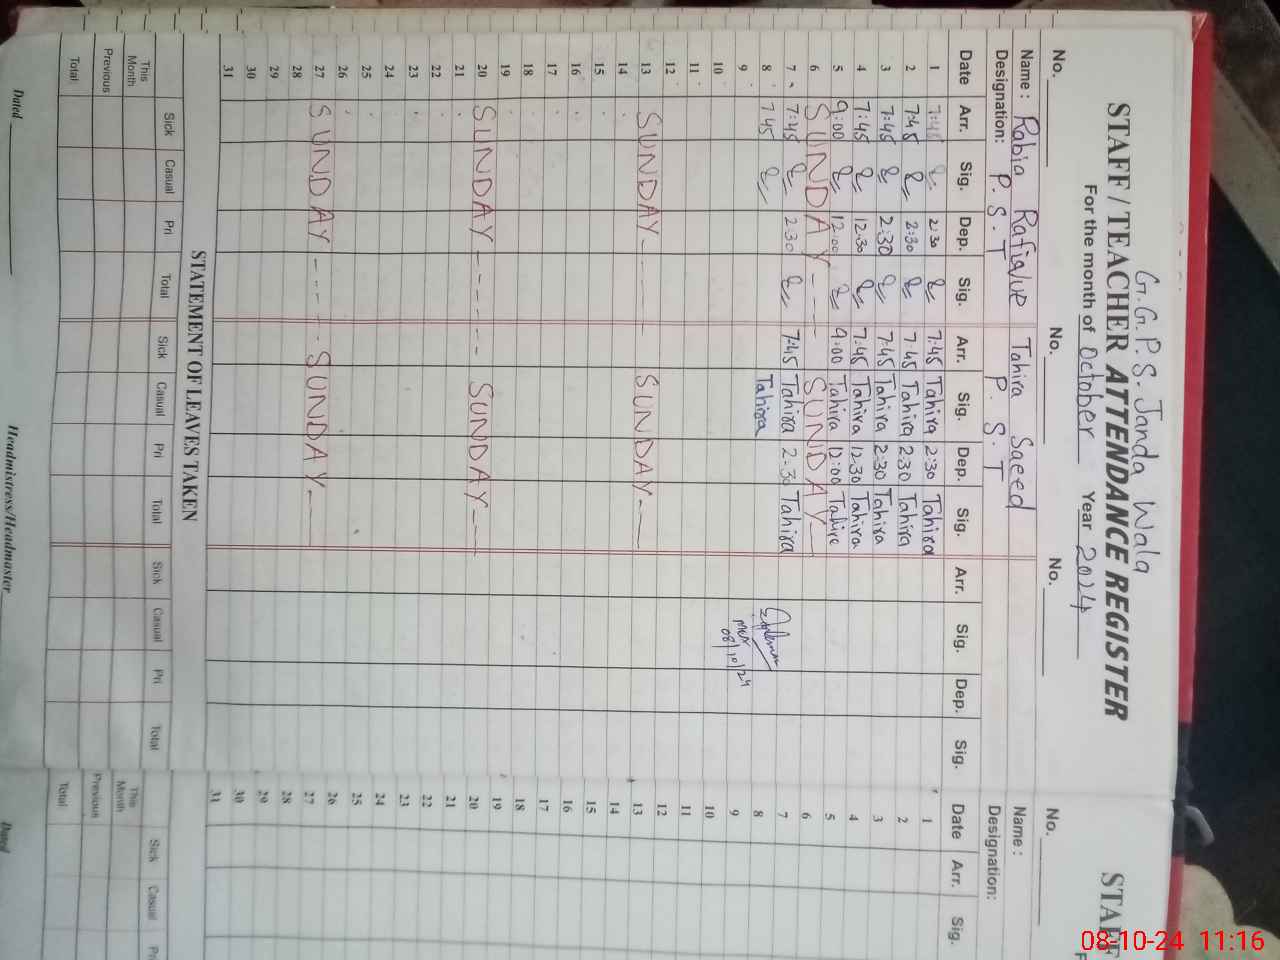 G.G.P.S. Janda Wala
STAFF / TEACHER ATTENDANCE REGISTER
For the month of October Year 2024
No. No. No.
Name : Rabia Rafique Tahira Saeed
Designation: P. S. T P. S. T
Date Arr. Sig. Dep. Sig. Arr. Sig. Dep. Sig. Arr. Sig. Dep. Sig.
1 7:45 2:30 7:45 Tahira 2:30 Tahira
2 7:45 2:30 7:45 Tahira 2:30 Tahira
3 7:45 2:30 7:45 Tahira 2:30 Tahira
4 7:45 12:30 7:45 Tahira 12:30 Tahira
5 9:00 12:00 9:00 Tahira 12:00 Tahira
6 SUNDAY SUNDAY
7 7:45 2:30 7:45 Tahira 2:30 Tahira
8 7:45 Tahira
9
08/10/24
10
11
12
13 SUNDAY SUNDAY
14
15
16
17
18
19
20 SUNDAY SUNDAY
21
22
23
24
25
26
27 SUNDAY SUNDAY
28
29
30
31
STATEMENT OF LEAVES TAKEN
Sick Casual Pri Total Sick Casual Pri Total Sick Casual Pri Total
This Month
Previous
Total
Dated Headmistress/Headmaster
STAFF
No.
Name :
Designation:
Date Arr. Sig.
1
2
3
4
5
6
7
8
9
10
11
12
13
14
15
16
17
18
19
20
21
22
23
24
25
26
27
28
29
30
31
Sick Casual Pri
This Month
Previous
Total
Dated
08-10-24 11:16